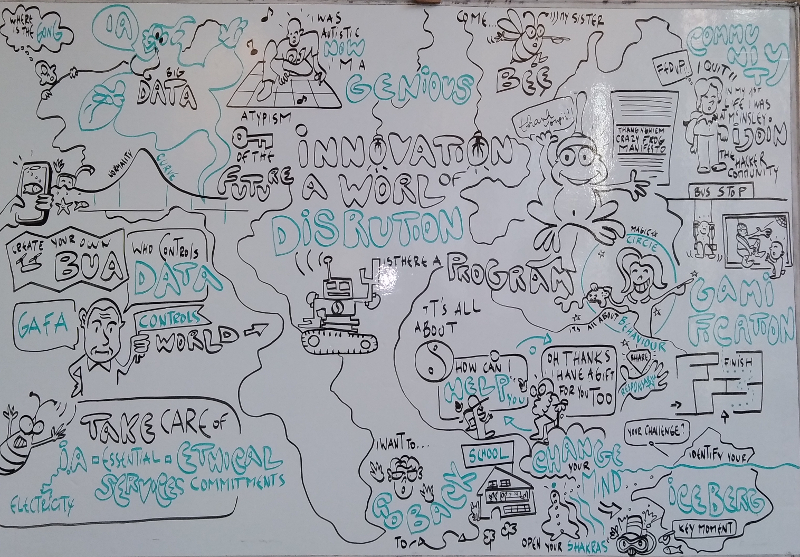 WHERE IS THE GONG
IA
BIG
DATA
I WAS
AUTISTIC
NOW
I'M A
GENIOUS
ATYPISM
KEY
OF THE
FUTURE
COME...
MY SISTER
BEE
COMMU
NITY
FED UP
I QUIT!
IN MY 1ST
LIFE I WAS
JOIN
THE HACKER
COMMUNITY
CRAZY FROG
MANIFESTO
BUS STOP
INNOVATION
A WORL OF
DISRUTION
NORMALITY
CURVE
CREATE YOUR OWN
BUA
WHO CONTROLS
DATA
CONTROLS
WORLD
GAFA
IS THERE A
PROGRAM
MAGIC
CIRCLE
IT'S ALL ABOUT
BEHAVIOUR
GAMI
FICATION
IT'S ALL
ABOUT
HOW CAN I
HELP YOU
OH THANKS
I HAVE A GIFT
FOR YOU TOO
SHARE
FINISH
YOUR CHALLENGE?
IDENTIFY YOUR
ICEBERG
KEY MOMENT
TAKE CARE OF
I.A ESSENTIAL ETHICAL
SERVICES COMMITMENTS
ELECTRICITY
I WANT TO...
GO BACK
TO
SCHOOL
CHANGE
YOUR
MIND
OPEN YOUR SHAKRAS